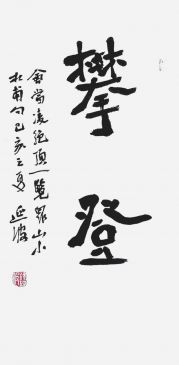 攀登
會當凌絕頂一覽眾山小
杜甫句己亥之夏延波